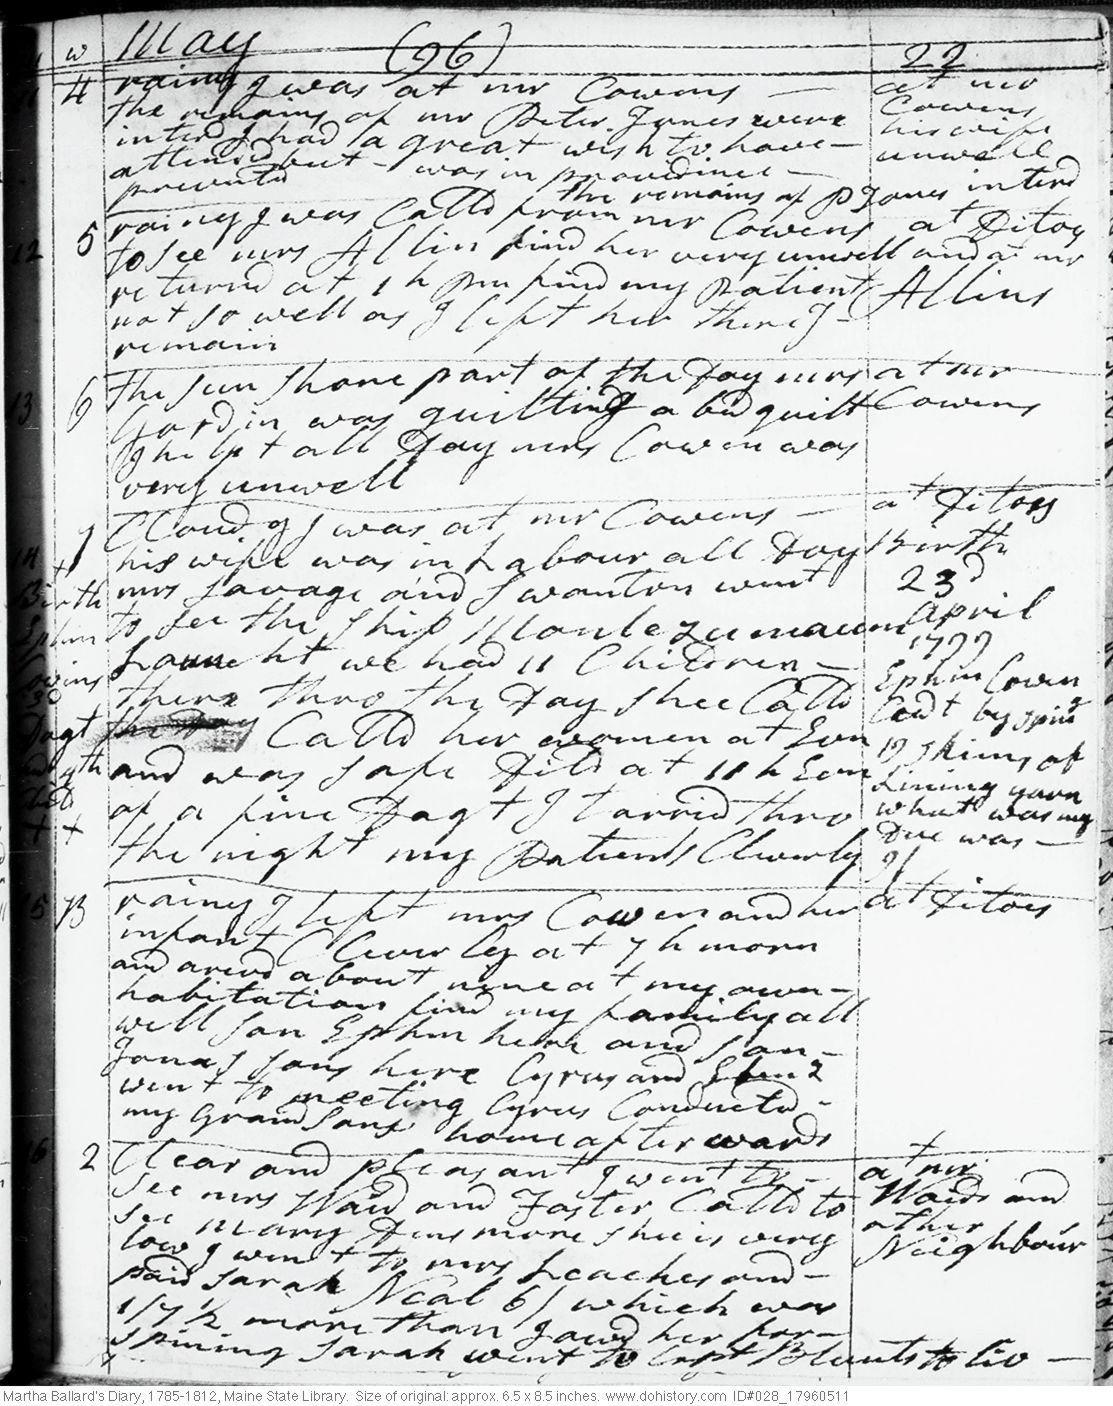 w May (96) 22
11 4 rainy I was at mr Cowens — at mr
the remains of mr Peter Jones were Cowens
interd I had a great wish to have — his wife
attend but — was in providince — unwell
prevented the remains of P Jones interd
12 5 rainy I was Calld from mr Cowens at Ditos
to see mrs Allin find her very unwell and at mr
returnd at 1 h pm find my patient Allins
not so well as I left her there I —
remain
13 6 the sun shone part of the Day mrs at mr
Gordin was quilting a bedquilt Cowens
I helpt all Day mrs Cowen was
very unwell
14 7 Cloudy I was at mr Cowens — at Ditoes
+ his wife was in Labour all Day Birth
Birth mrs Savage and Swanton went 23d
Ephm to see the Ship Montezuma April
Cowins Launcht we had 11 Children — 1799
3d there thro the Day shee Calld Ephm Cowen
Dagt the Day Calld her women at Evn Cred t by spin g
and was safe Dild at 11 h Evn 19 skiens of
of a fine Dagt I tarried thro Lining yarn
+ + the night my Patients Cleverly what was my
Due was —
9/
15 B rainy I left mrs Cowen and her at Ditoes
infant Cleverly at 7 h morn
and arivd about nine at my own —
habitation find my family all
well son Ephm here and son —
Jonas sons here Cyrus and Eben 2
went to meeting Cyrus Conducted —
my Grand Sons home afterwards
16 2 Clear and pleasant I went to — + at mr
see mrs Waid and Foster Calld to Waids and
see Mary Densmore shee is very other
low I went to mrs Leaches and — Neighbour
paid Sarah Neal 6/ which was
1/7 ½ more than I owd her for —
spining Sarah went to Capt Blunts to liv —
Martha Ballard's Diary, 1785-1812, Maine State Library. Size of original: approx. 6.5 x 8.5 inches. www.dohistory.com ID#028_17960511